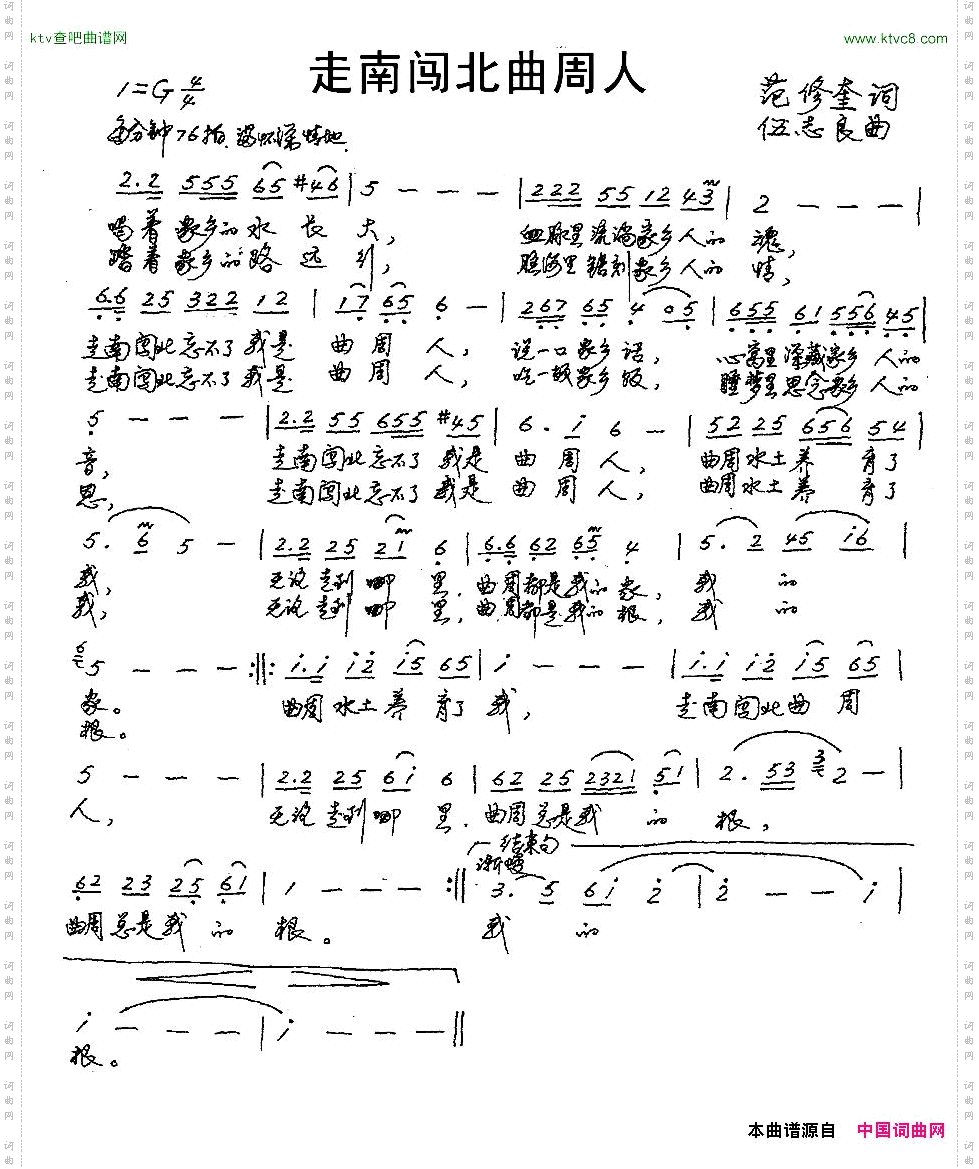 ktv查吧曲谱网
www.ktvc8.com
走南闯北曲周人
1=G 4/4
范修奎词
每分钟76拍 满怀深情地
伍志良曲
2.2 555 65 #46 | 5 - - - | 222 55 12 43 | 2 - - - |
喝着家乡的水长大, 血脉里流淌家乡人的魂,
踏着家乡的路远行, 脑海里镌刻家乡人的情,
6.6 25 322 12 | 17 65 6 - | 267 65 4 05 | 655 61 556 45 |
走南闯北忘不了我是曲周人, 说一口家乡话, 心窝里深藏家乡人的
走南闯北忘不了我是曲周人, 吃一顿家乡饭, 睡梦里思念家乡人的
5 - - - | 2.2 55 555 #45 | 6. i 6 - | 52 25 656 54 |
音, 走南闯北忘不了我是曲周人, 曲周水土养育了
恩, 走南闯北忘不了我是曲周人, 曲周水土养育了
5. 6 5 - | 2.2 25 21 6 | 6.6 62 65 4 | 5. 2 45 i6 |
我, 无论走到哪里, 曲周都是我的家, 我的
我, 无论走到哪里, 曲周都是我的根, 我的
6 5 - - - :||: i.i i2 i5 65 | i - - - | i.i i2 i5 65 |
家。 曲周水土养育了我, 走南闯北曲周
根。
5 - - - | 2.2 25 6i 6 | 62 25 2321 51 | 2. 53 3 2 - |
人, 无论走到哪里, 曲周总是我的根,
结束句
渐慢
62 23 25 61 | 1 - - - :|| 3. 5 6i 2 | 2 - - i |
曲周总是我的根。 我的
i - - - | i - - - ||
根。
本曲谱源自 中国词曲网